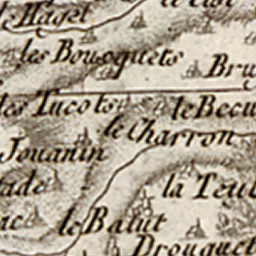 le Haget
les Bousquets
Bru
les Tucots
le Becu
le Charron
Jouanin
la Teul
lade
ac
le Balut
Drouguet